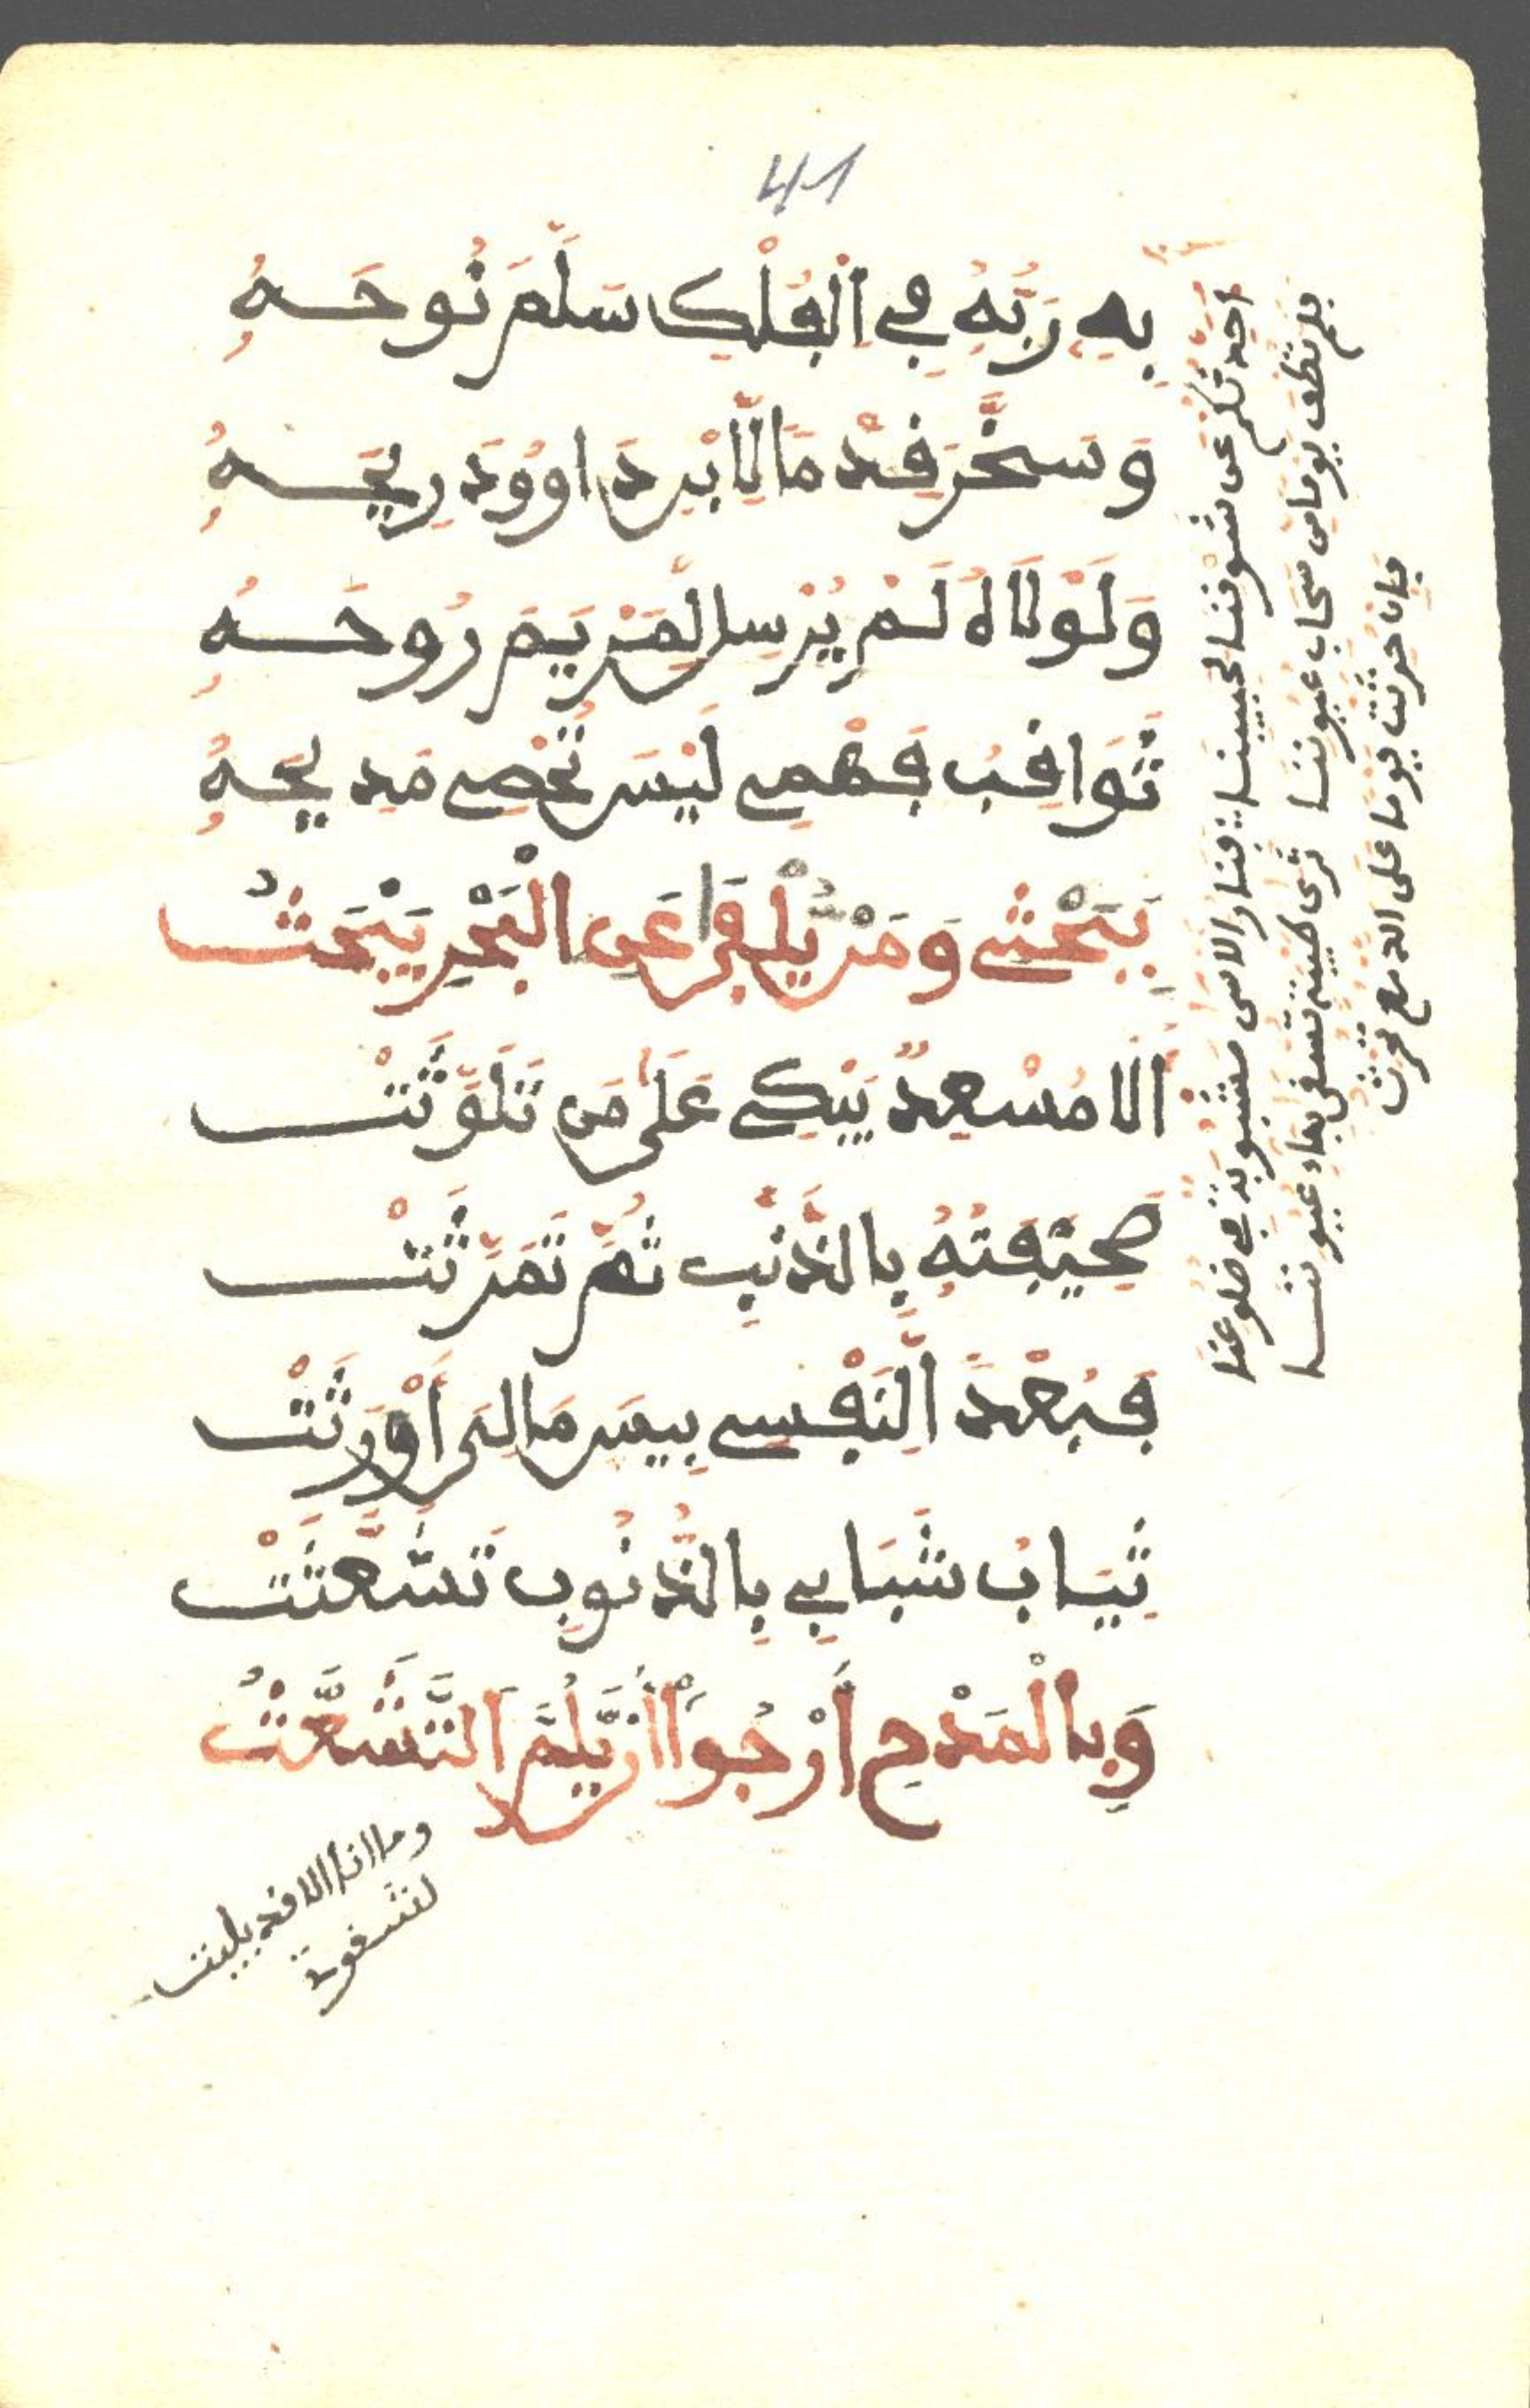 41
بِهِ رَبُّهُ فِي الْفُلْكِ سَلَّمَ نُوحَهُ
وَسَخَّرَ قِدْمًا لِابْنِ دَاوُودَ رِيحَهُ
وَلَوْلَاهُ لَمْ يُرْسِلْ لِمَرْيَمَ رُوحَهُ
ثَوَاقِبُ فَهْمِي لَيْسَ تُحْصِي مَدِيحَهُ
بِبَحْثِي وَمَنْ يُلْفَ عَنِ الْبَحْرِ يَبْحَثُ
الا مُسْعِدٌ يَبْكِي عَلَى مَنْ تَلَوَّثَتْ
صَحِيفَتُهُ بِالذَّنْبِ ثُمَّ تَمَرَّثَتْ
فَبُعْدًا لِنَفْسِي بِيسَ مَا لِيَ أَوْرَثَتْ
ثِيَابُ شَبَابِي بِالذُّنُوبِ تَشَعَّثَتْ
وَبِالْمَدْحِ أَرْجُوا أَنْ يُلَمَّ التَّشَعُّثُ
احدثكم عن شوقنا لحبيبنا
فنار الاسى مشبوبة في ضلوعنا
فلم تطف يوما من سحاب عيوننا
ثرى طيبة تسقى بماء عيوننا
فان حرثت يوما على الدمع تحرث
وما انا الا قد بليت
لشقوة